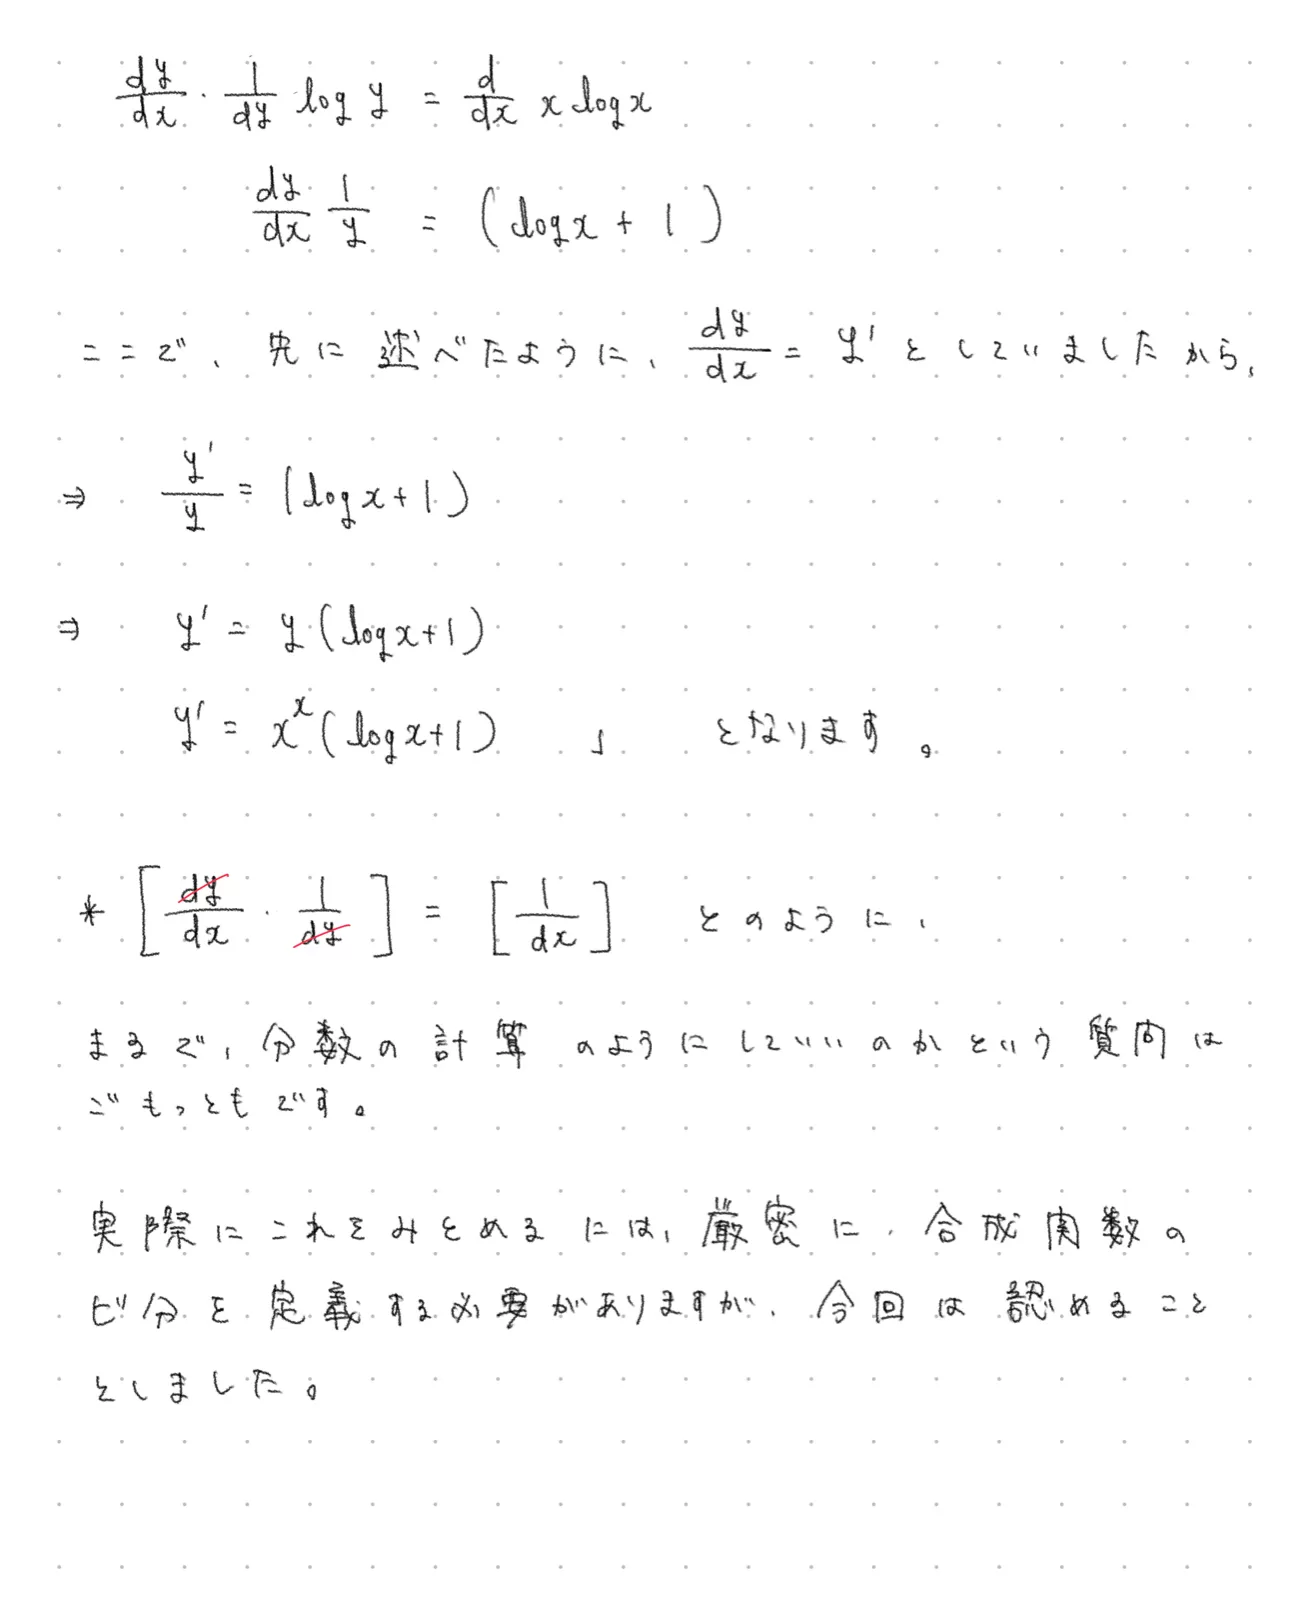 dy/dx · 1/dy log y = d/dx x log x
dy/dx 1/y = (log x + 1)
ここで、先に述べたように、dy/dx = y' としていましたから、
⇒ y'/y = (log x + 1)
⇒ y' = y (log x + 1)
y' = x^x (log x + 1) 」 となります。
* [dy/dx · 1/dy] = [1/dx] とのように、
まるで、分数の計算のようにしていいのかという質問は
ごもっともです。
実際にこれをみとめるには、厳密に、合成関数の
ビ分を定義する必要がありますが、今回は認めること
としました。